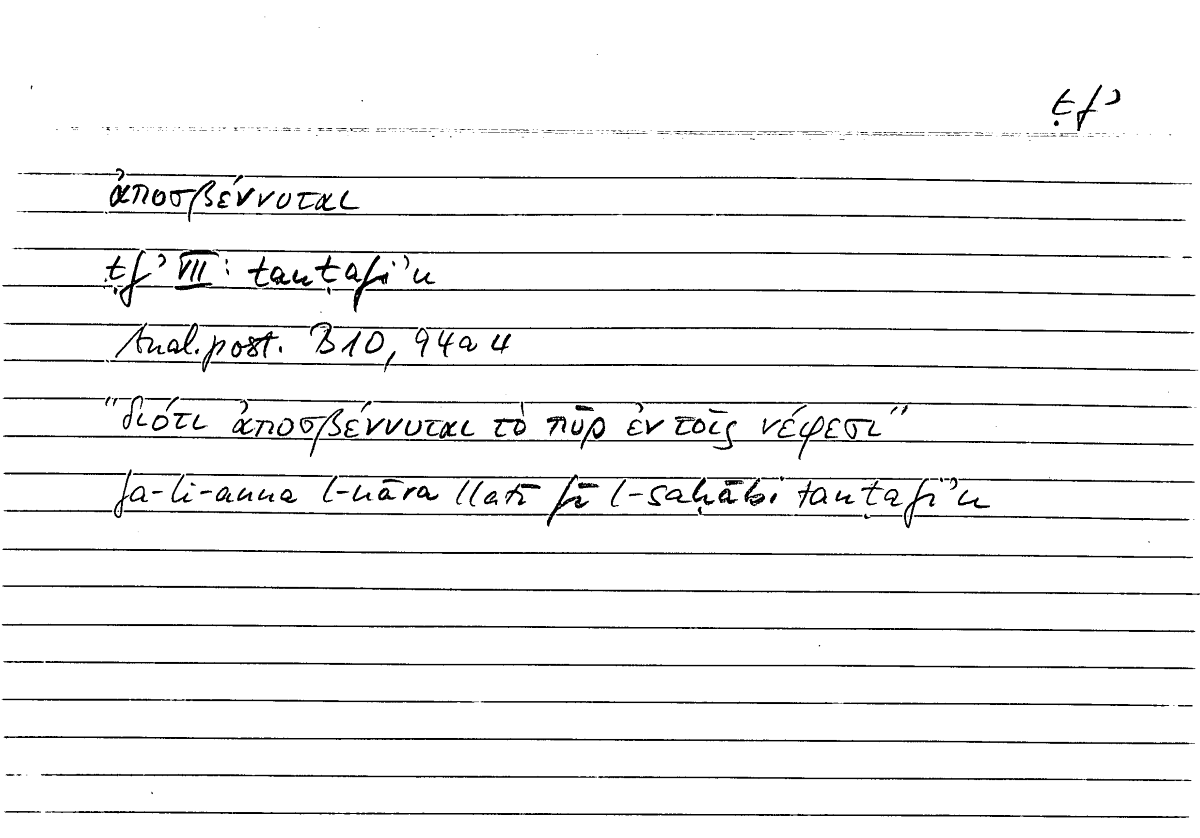 ṭfʾ
ἀποσβέννυται
ṭfʾ VII: tanṭafiʾu
Anal. post. B10, 94a4
"διότι ἀποσβέννυται τὸ πῦρ ἐν τοῖς νέφεσι"
fa-li-anna l-nāra llatī fī l-saḥābi tanṭafiʾu